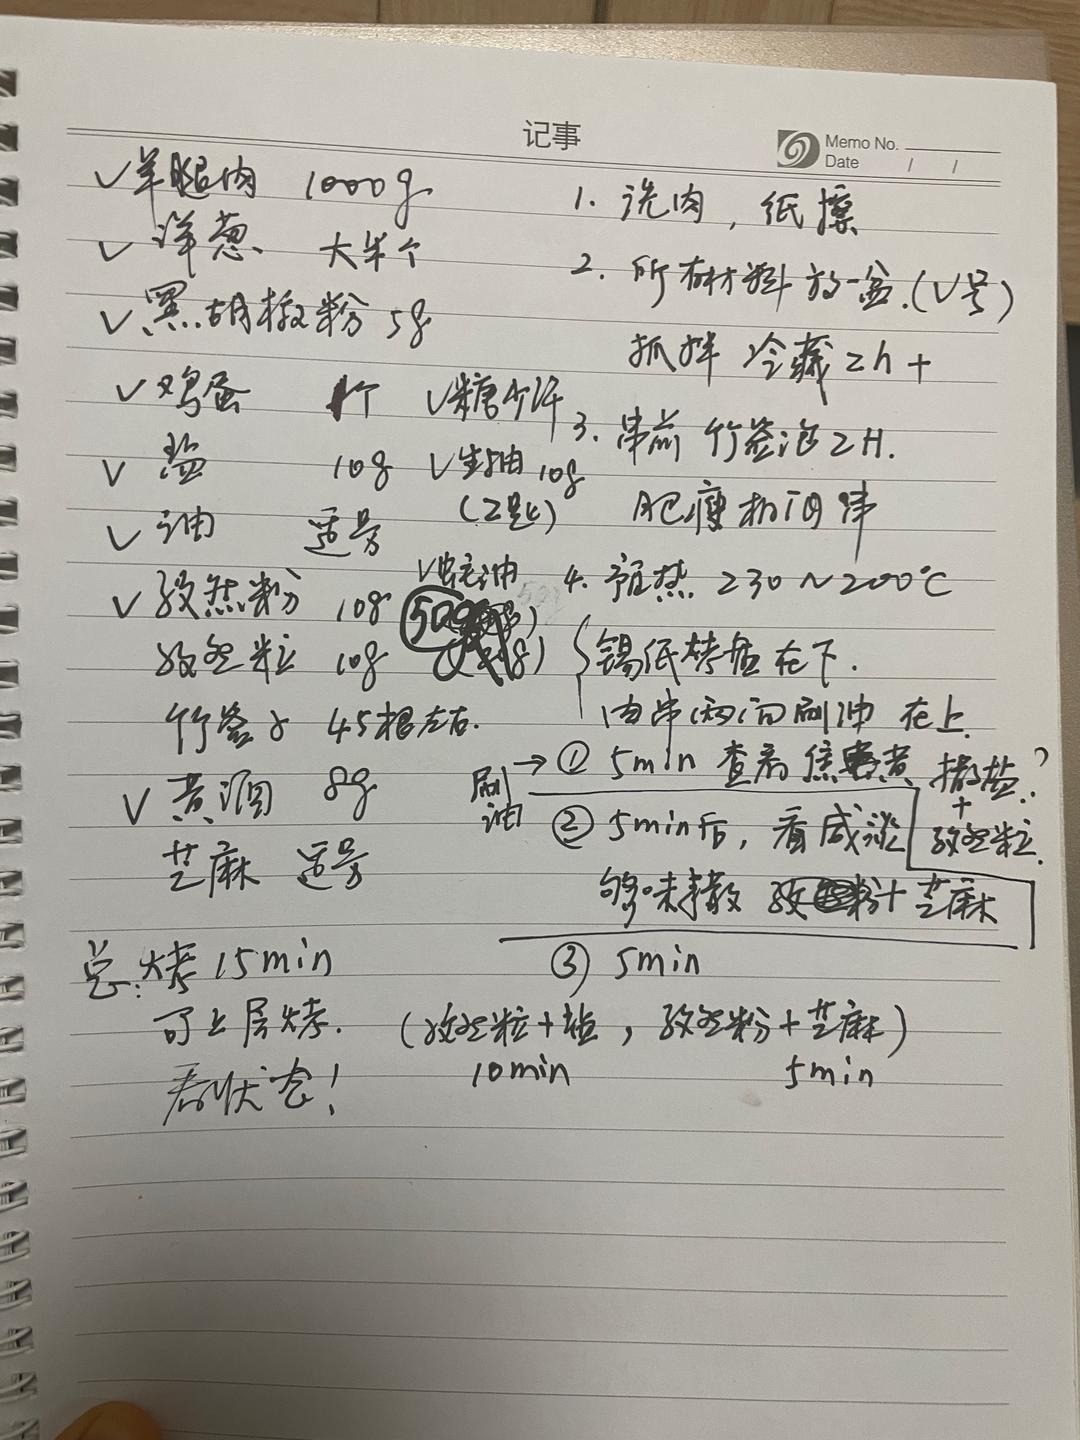 记事
Memo No.
Date / /
√羊腿肉 1000g
√洋葱 大半个
√黑胡椒粉 5g
√鸡蛋 1个 √糖少许
√盐 10g √生抽10g
(2匙)
√油 适量
√蚝油
√孜然粉 10g 50g
孜然粒 10g
竹签子 45根左右.
√黄酒 8g
芝麻 适量
总:烤15min
可上层烤.
看状态!
1. 洗肉,纸擦
2. 所有材料放一盆.(√号)
抓拌 冷藏2h+
3. 串前 竹签泡2H.
肥瘦相间串
4. 预热 230~200℃
锡纸烤盘在下.
肉串两面刷油 在上.
刷油→① 5min 查看焦黄 撒盐?
+
孜然粒.
② 5min后,看咸淡
够味撒 孜然粉+芝麻
③ 5min
(孜然粒+盐,孜然粉+芝麻)
10min 5min